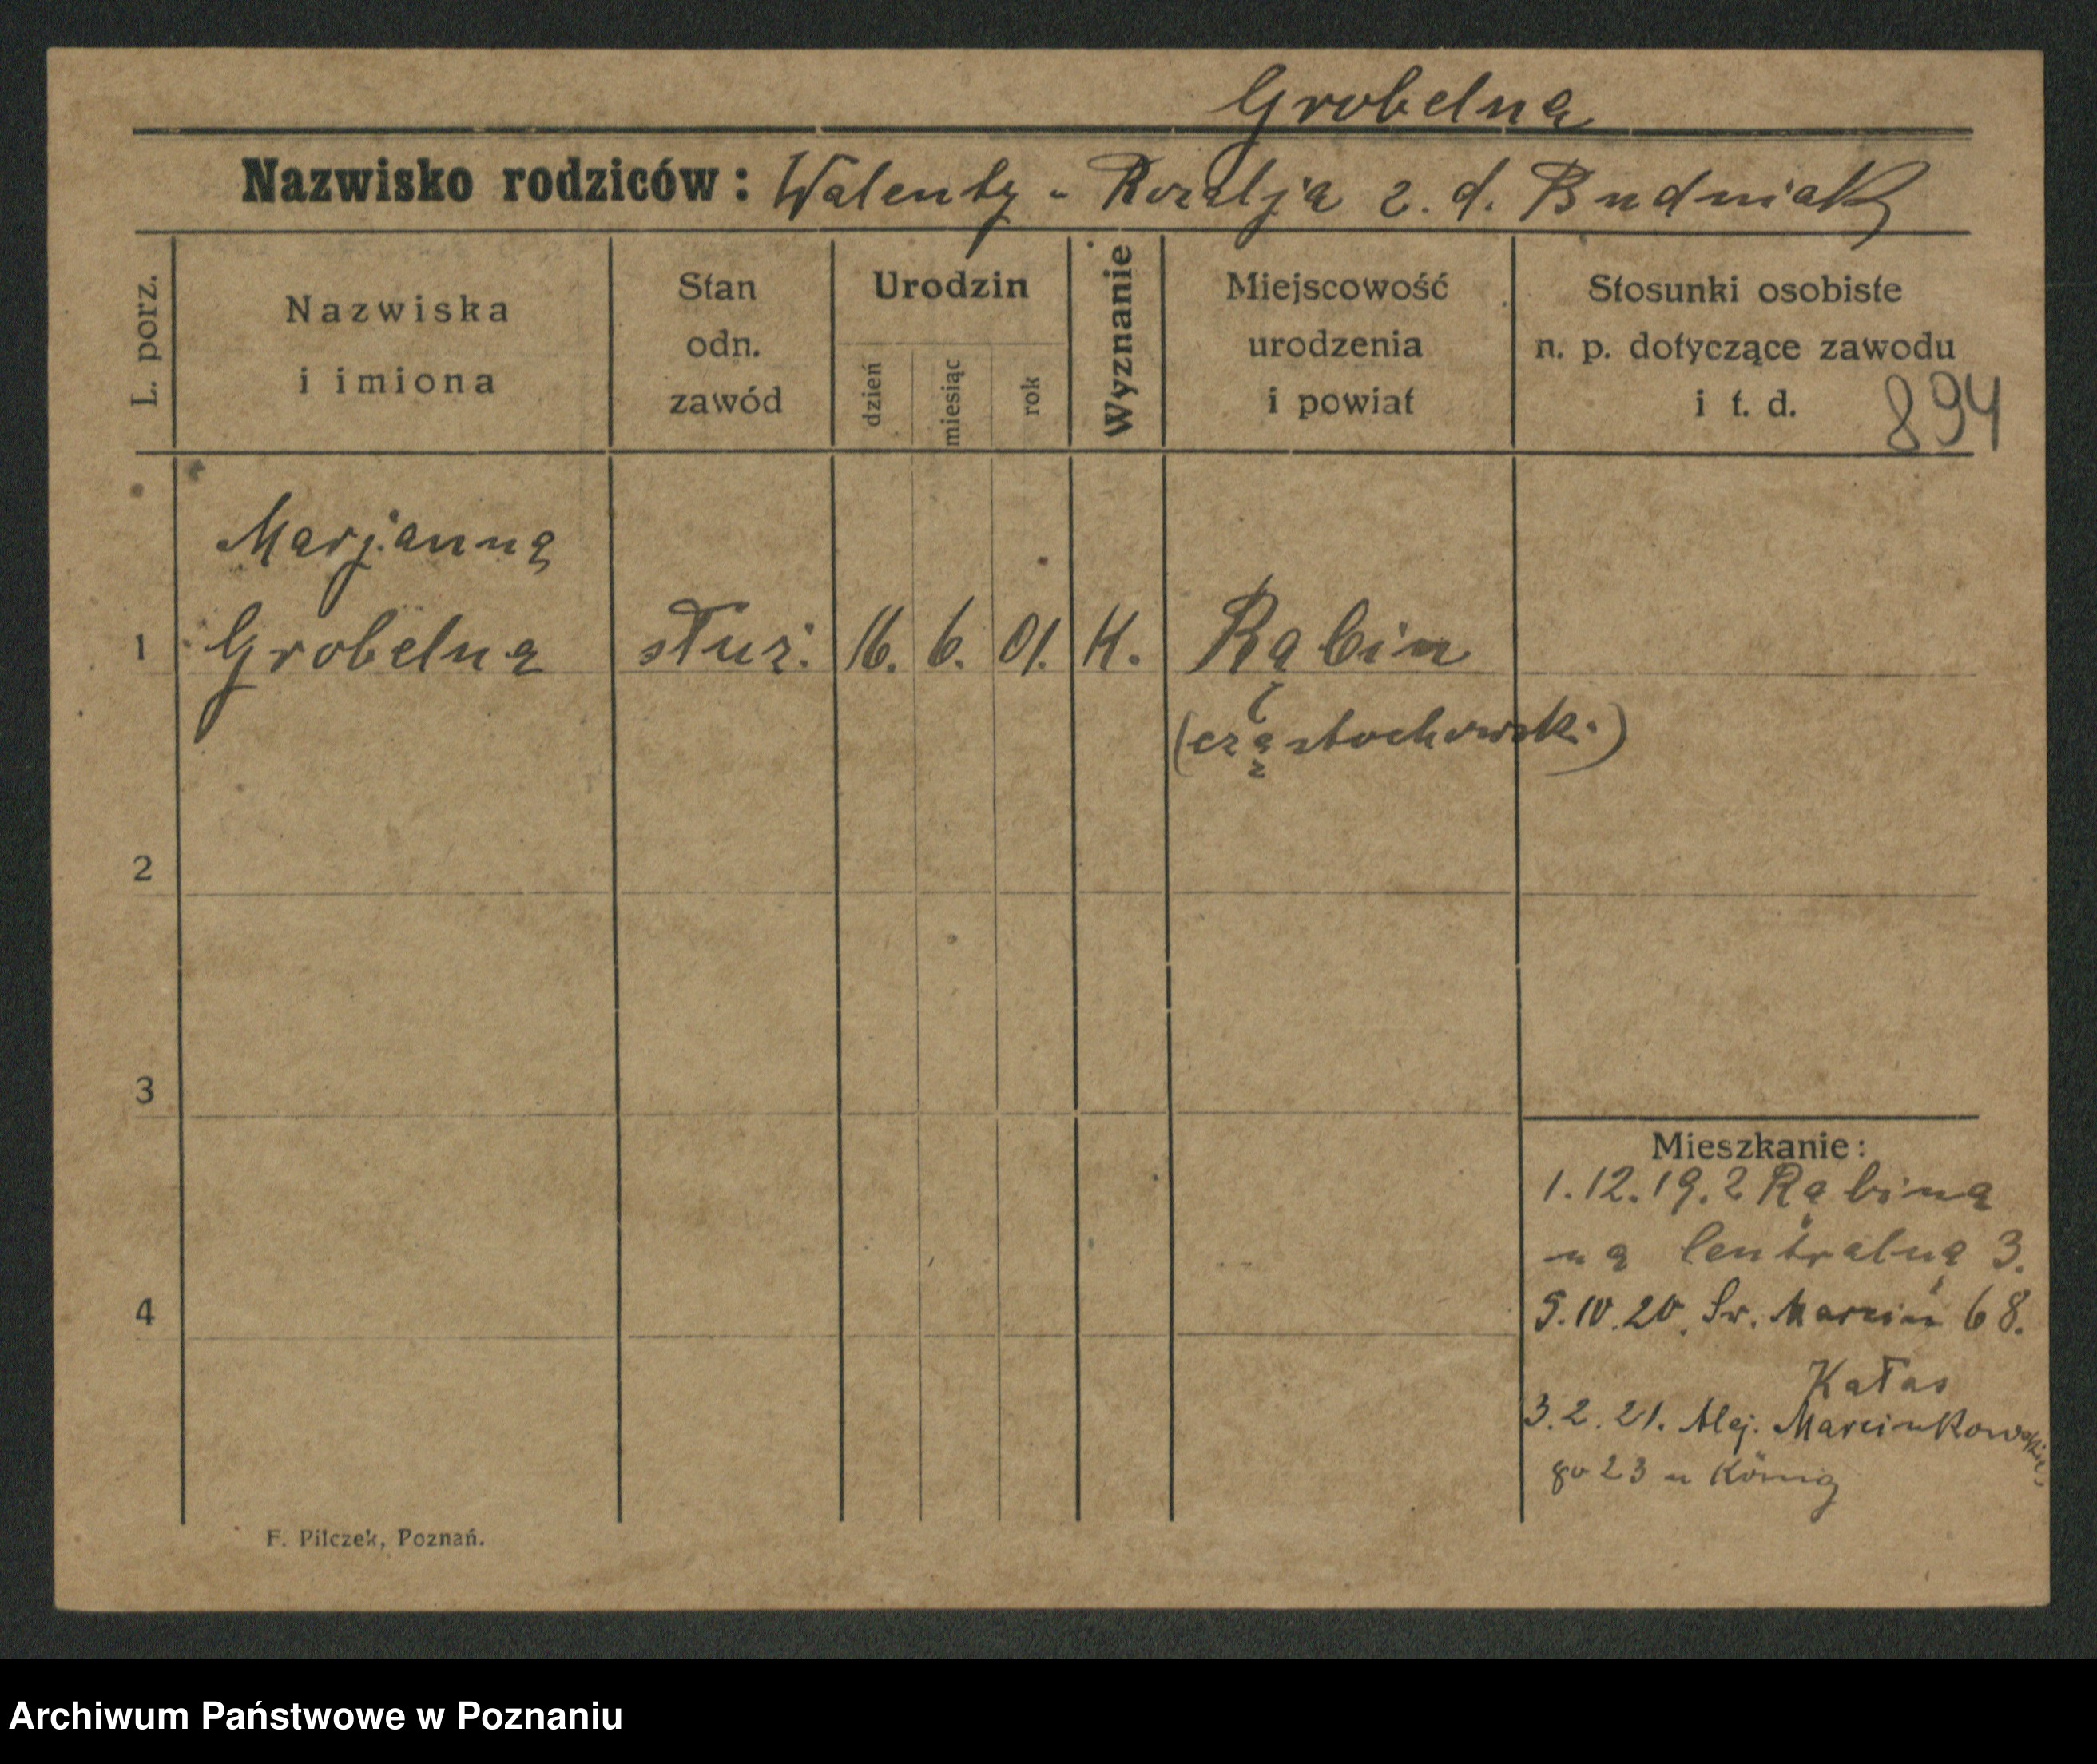 Grobelna
Nazwisko rodziców: Walenty - Rozalja z. d. Budniak
L. porz.
Nazwiska
i imiona
Stan
odn.
zawód
Urodzin
dzień
miesiąc
rok
Wyznanie
Miejscowość
urodzenia
i powiat
Stosunki osobiste
n. p. dotyczące zawodu
i t. d. 894
Marjanna
1 Grobelna służ. 16. 6. 01. K. Rąbin
(częstochowsk.)
2
3
4
Mieszkanie:
1.12.19. z Rąbina
na Centralną 3.
5.10.20. Św. Marcin 68.
Kałas
3.2.21. Alej. Marcinkowskie-
go 23 u König
F. Pilczek, Poznań.
Archiwum Państwowe w Poznaniu